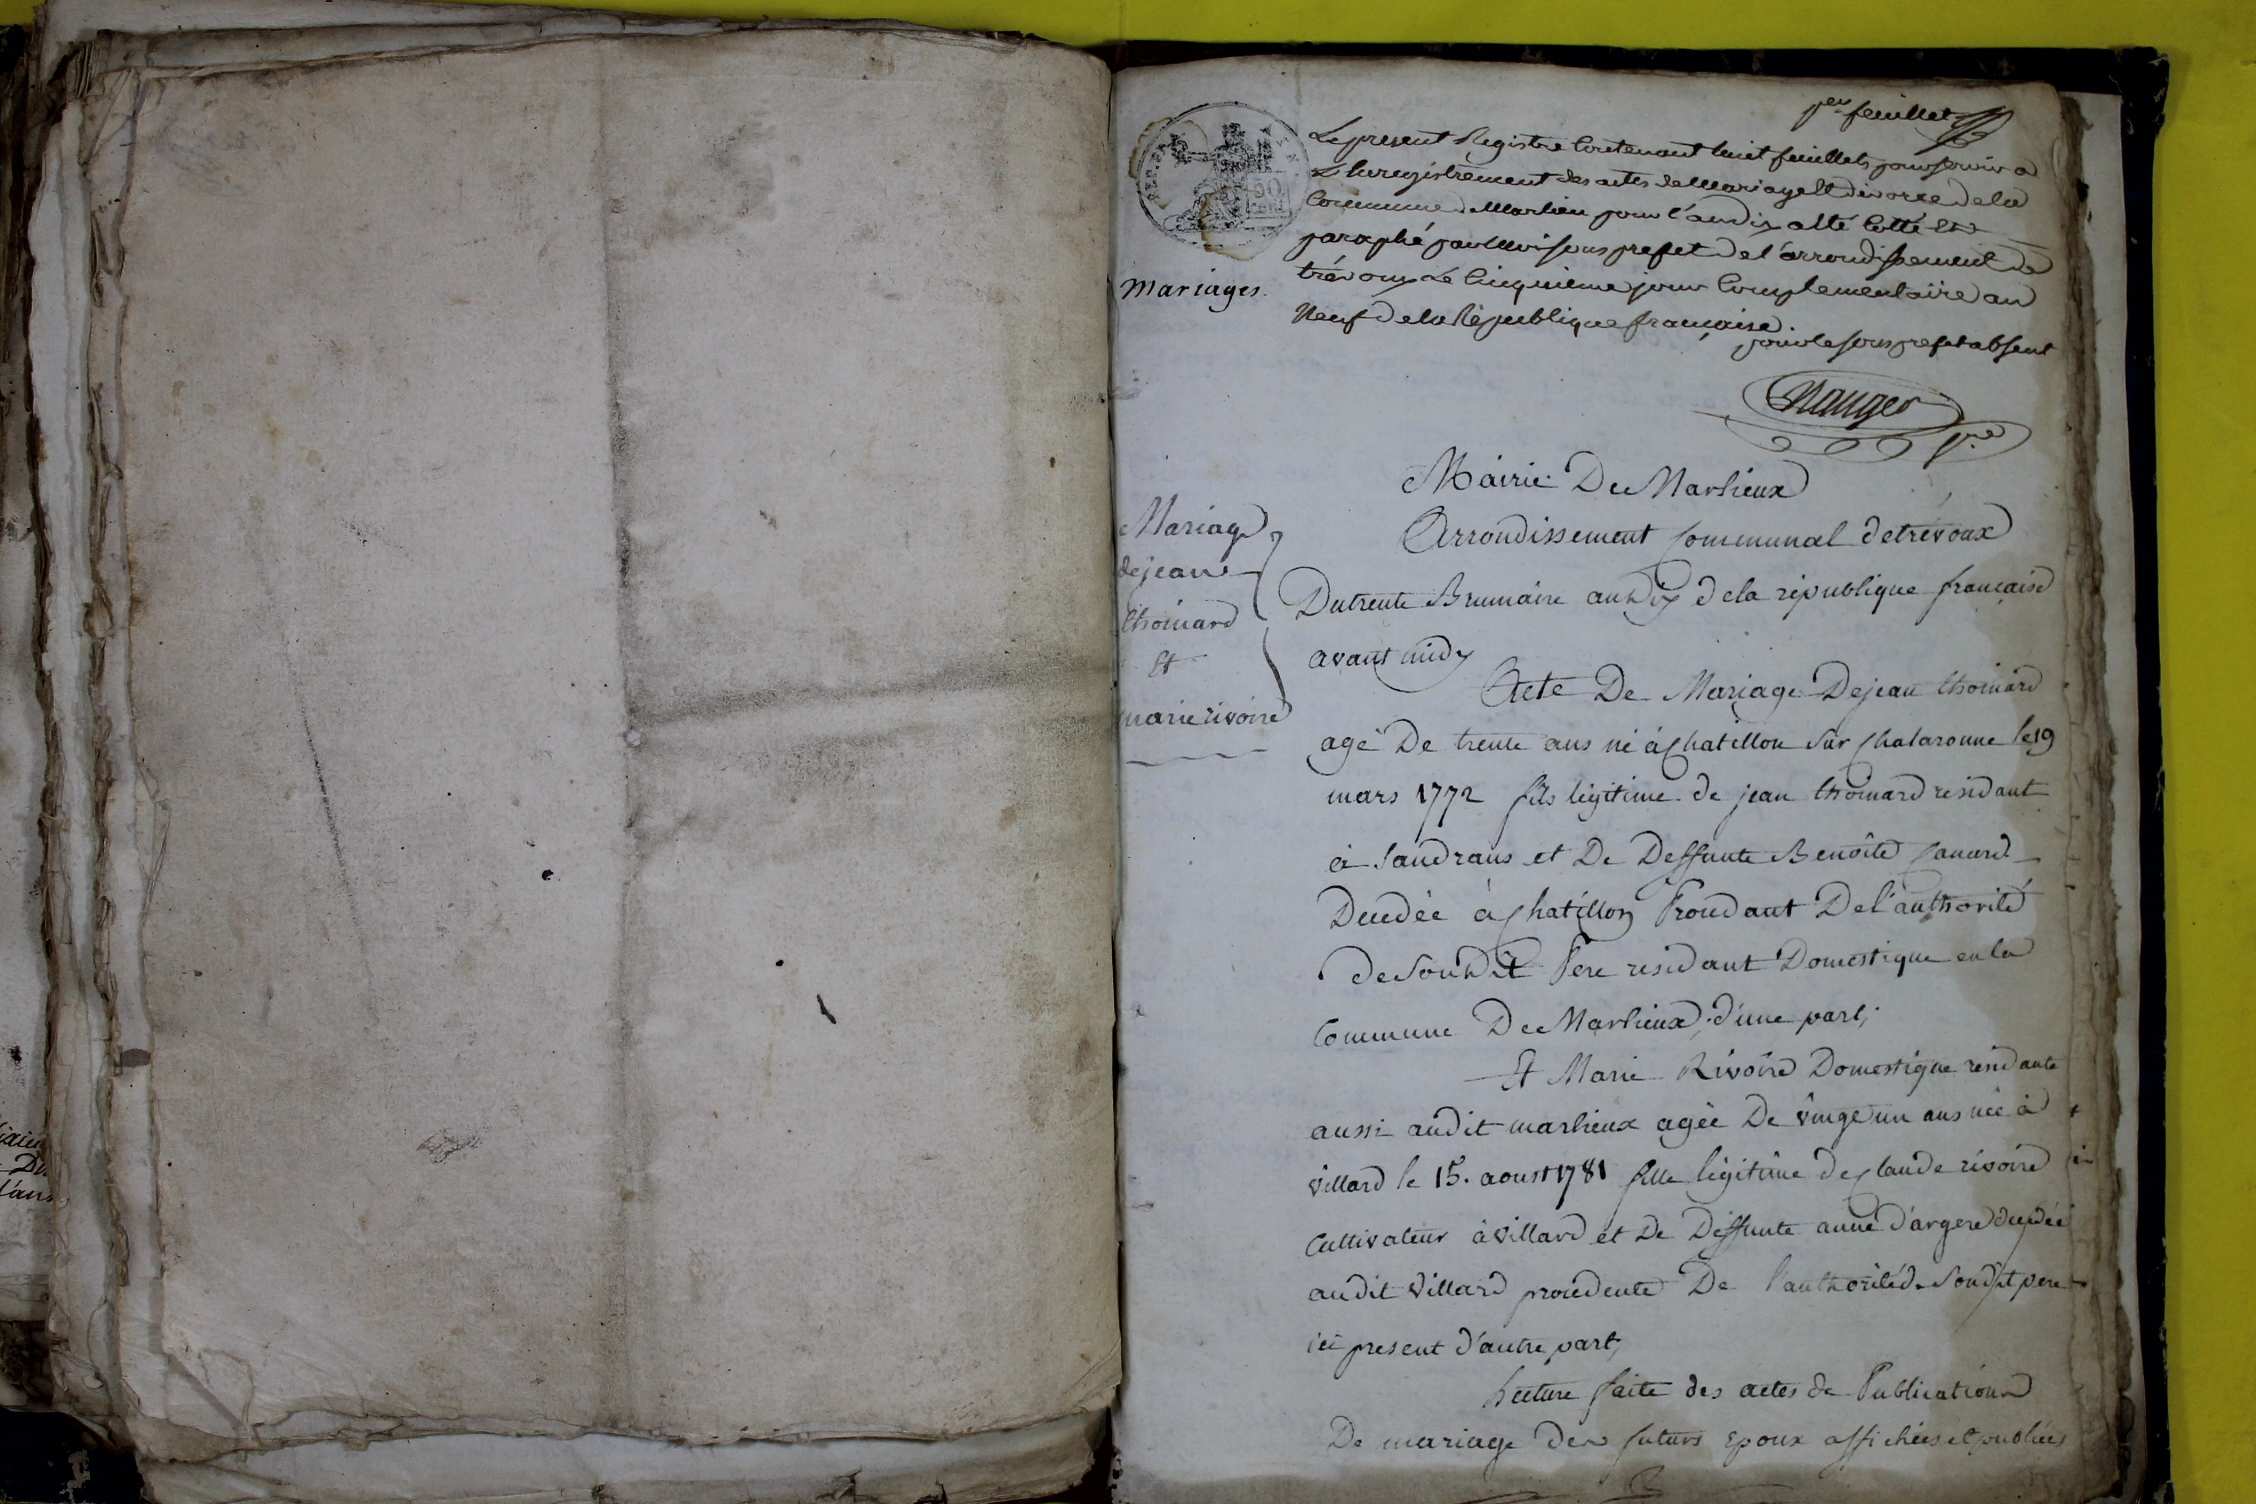 1er feuillet
Le present Registre Contenant huit feuillets pour servir a
L'Enregistrement des actes de Mariage Et divorce de la
Commune de Marlieu pour l'an dix a été Cotté Et
paraphé par Moi sous prefet de l'arrondissement de
trévoux Le Cinquieme jour Complementaire an
Neuf de la République française.
pour le sous prefet absent
Mariages.
Mairie De Marlieux
Arrondissement Communal de trévoux
Mariage
de jean
thoinard
Et
marie rivoire
Du trente Brumaire an Dix de la république française
avant midy
Acte De Mariage De jean thoinard
agé De trente ans né à Chatillon Sur Chalaronne le 19
mars 1772 fils légitime de jean thoinard residant
à Sandrans et De Deffunte Benoîte Canard
Decedée à Chatillon Procedant De l'authorité
de Son Dit Pere residant Domestique en la
Commune De Marlieux, d'une part;
Et Marie Rivoire Domestique residante
aussi audit marlieux agée De vingt un ans née à
villard le 15. aoust 1781 fille légitime de Claude rivoire
Cultivateur à villard et De Deffunte anne d'argere decedée
audit villard procedente De l'authorité de Son dit pere
ici present d'autre part;
Lecture faite des actes de Publication
De mariage des futurs Epoux affichées et publiées